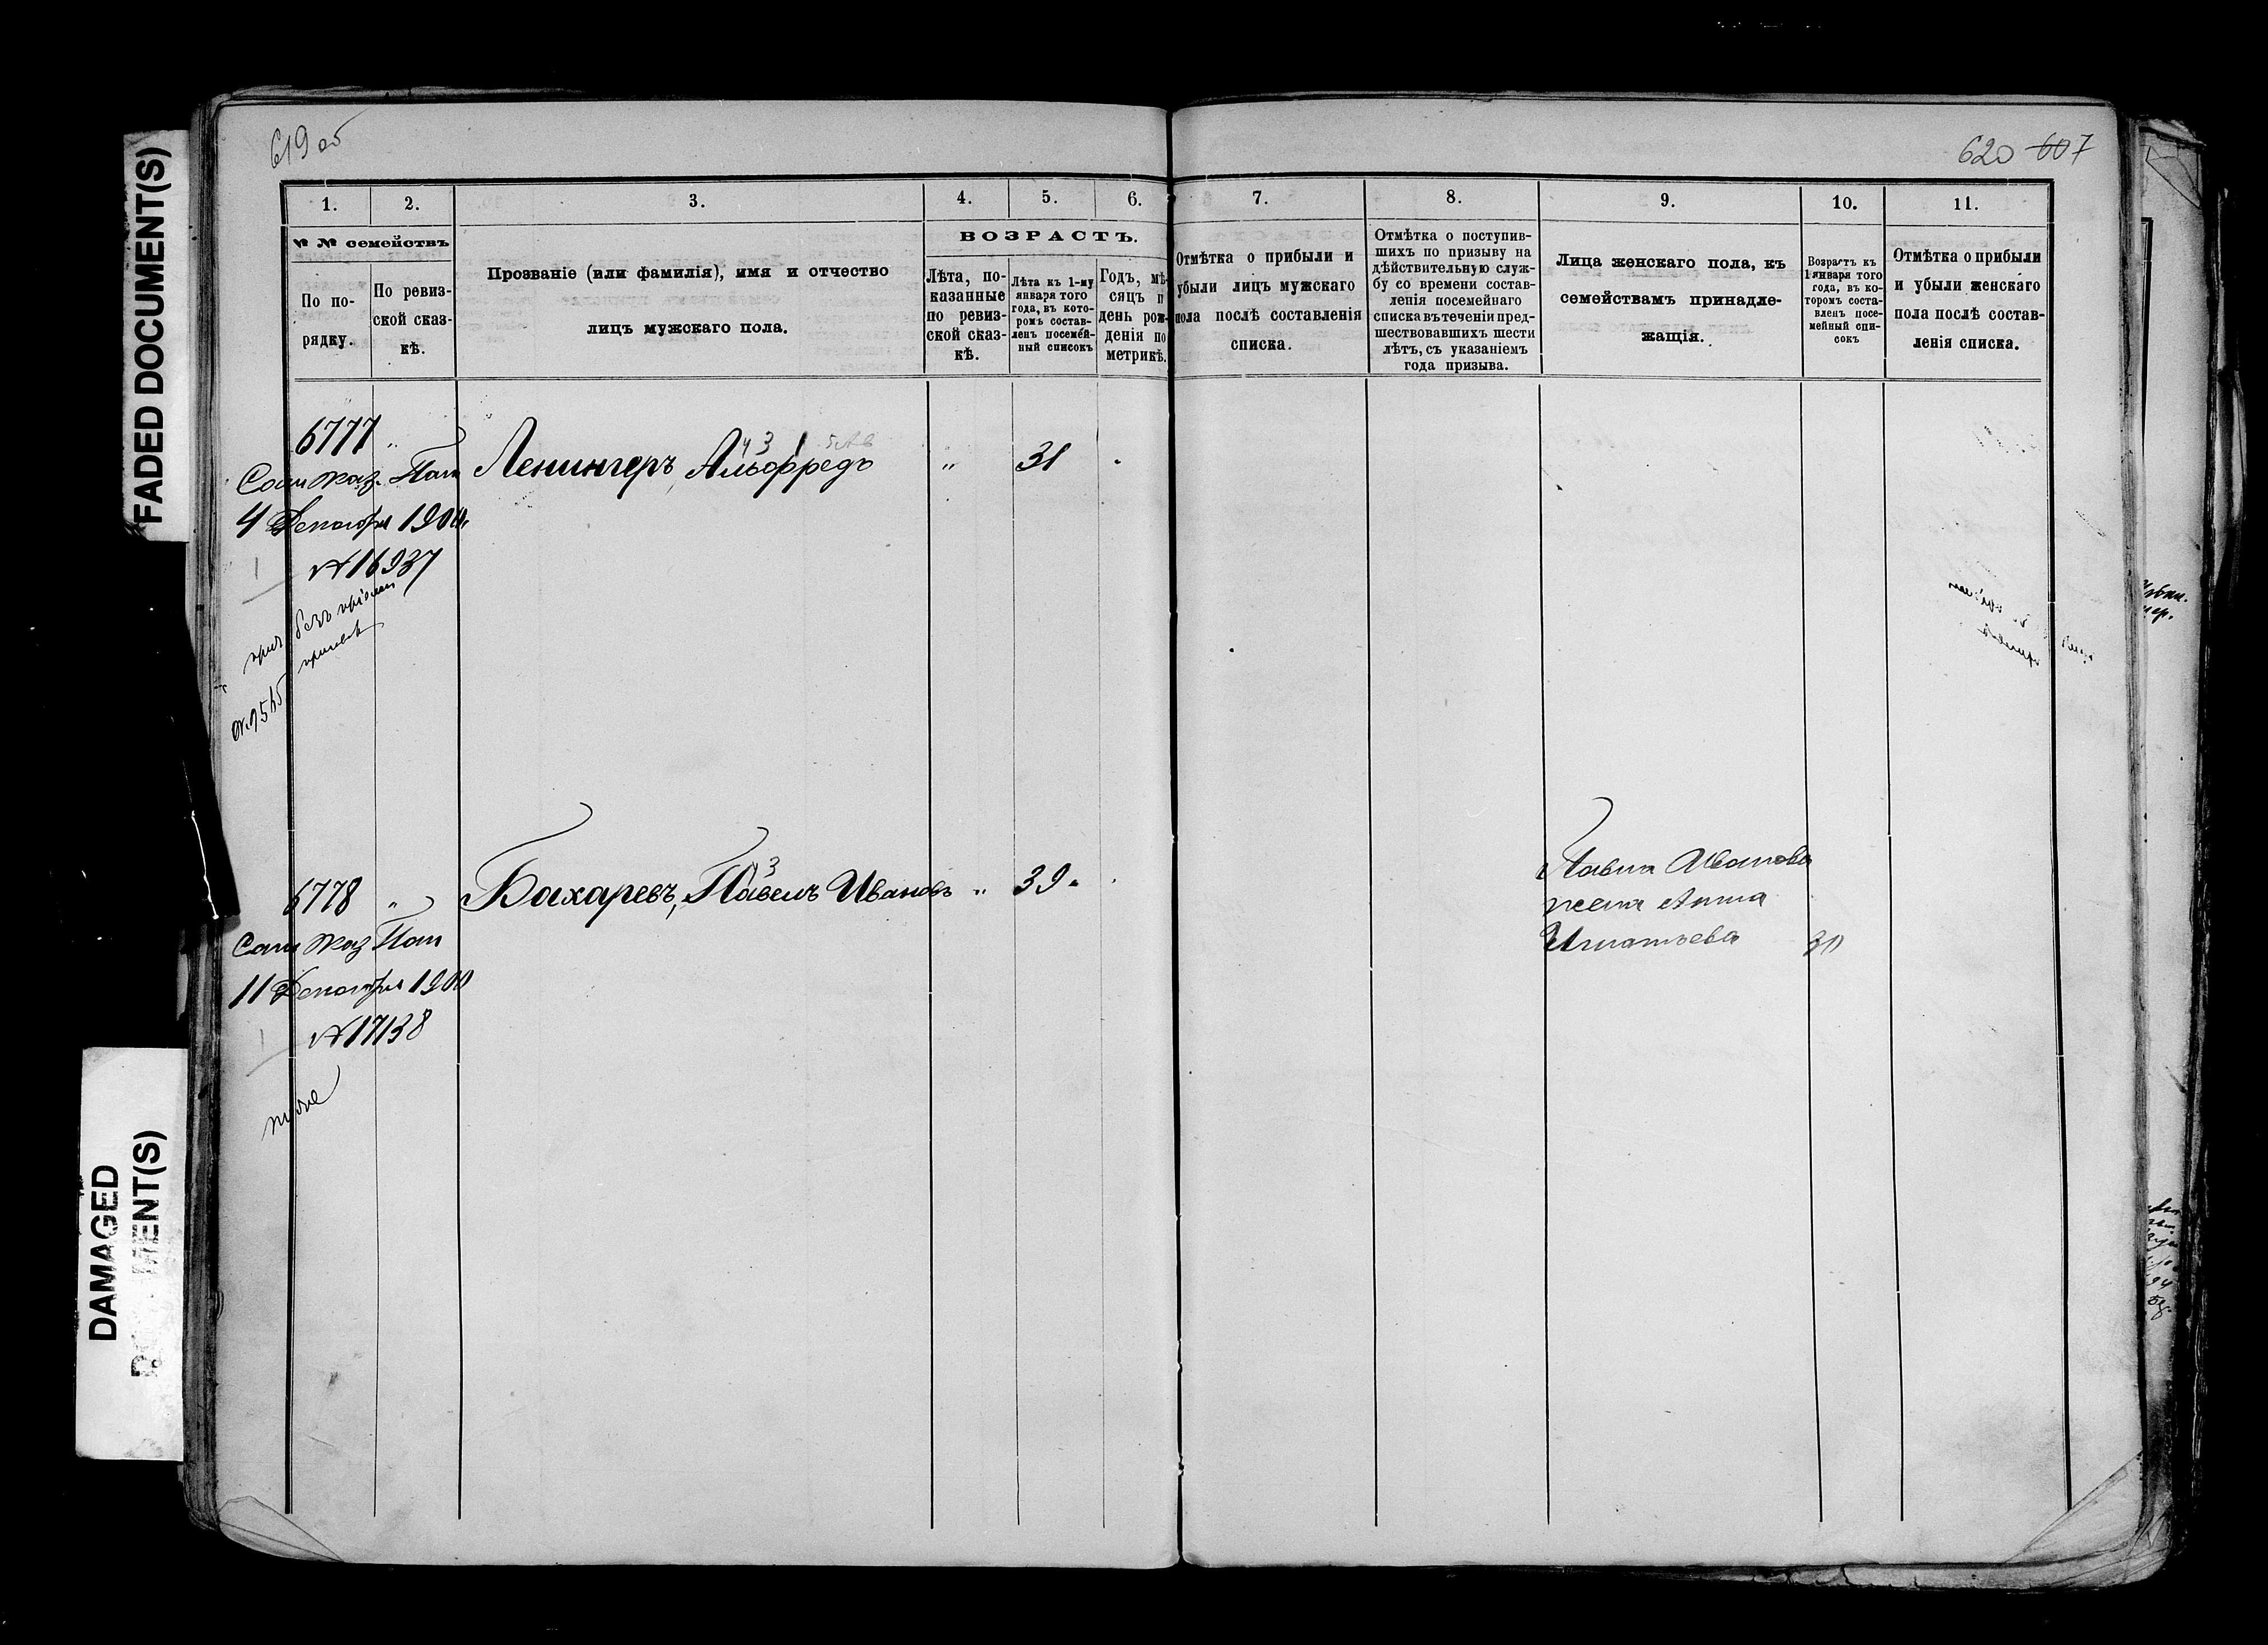 FADED DOCUMENT(S)
DAMAGED
MENT(S)
619 об
620 607
1.
2.
3.
4.
5.
6.
7.
8.
9.
10.
11.
№ № семействъ
По по-
рядку.
По ревиз-
ской сказ-
кѣ.
Прозваніе (или фамилія), имя и отчество
лицъ мужскаго пола.
ВОЗРАСТЪ.
Лѣта, по-
казанные
по ревиз-
ской сказ-
кѣ.
Лѣта къ 1-му
января того
года, въ кото-
ромъ состав-
ленъ посемей-
ный списокъ
Годъ, мѣ-
сяцъ и
день рож-
денія по
метрикѣ.
Отмѣтка о прибыли и
убыли лицъ мужскаго
пола послѣ составленія
списка.
Отмѣтка о поступив-
шихъ по призыву на
дѣйствительную служ-
бу со времени состав-
ленія посемейнаго
списка въ теченіи пред-
шествовавшихъ шести
лѣтъ, съ указаніемъ
года призыва.
Лица женскаго пола, къ
семействамъ принадле-
жащія.
Возрастъ къ
1 января того
года, въ ко-
торомъ соста-
вленъ посе-
мейный спи-
сокъ
Отмѣтка о прибыли
и убыли женскаго
пола послѣ состав-
ленія списка.
6777 "
Сам Каз. Пал
Ленингеръ, Альфредъ " 31
43
4 Декабря 1900
№ 16937
безъ
6778 "
Бахаревъ, Павелъ Ивановъ " 39
3
Сам Каз Пал
11 Декабря 1900
№ 17138
тоже
Павла Иванова
жена Анна
Игнатьева 30